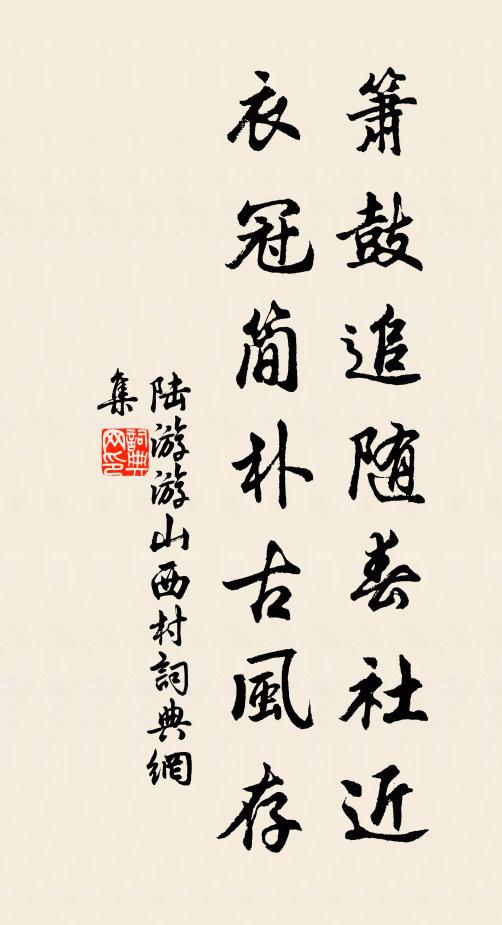 箫鼓追随春社近
衣冠简朴古風存
陆游游山西村詞典網
集
詞典网印